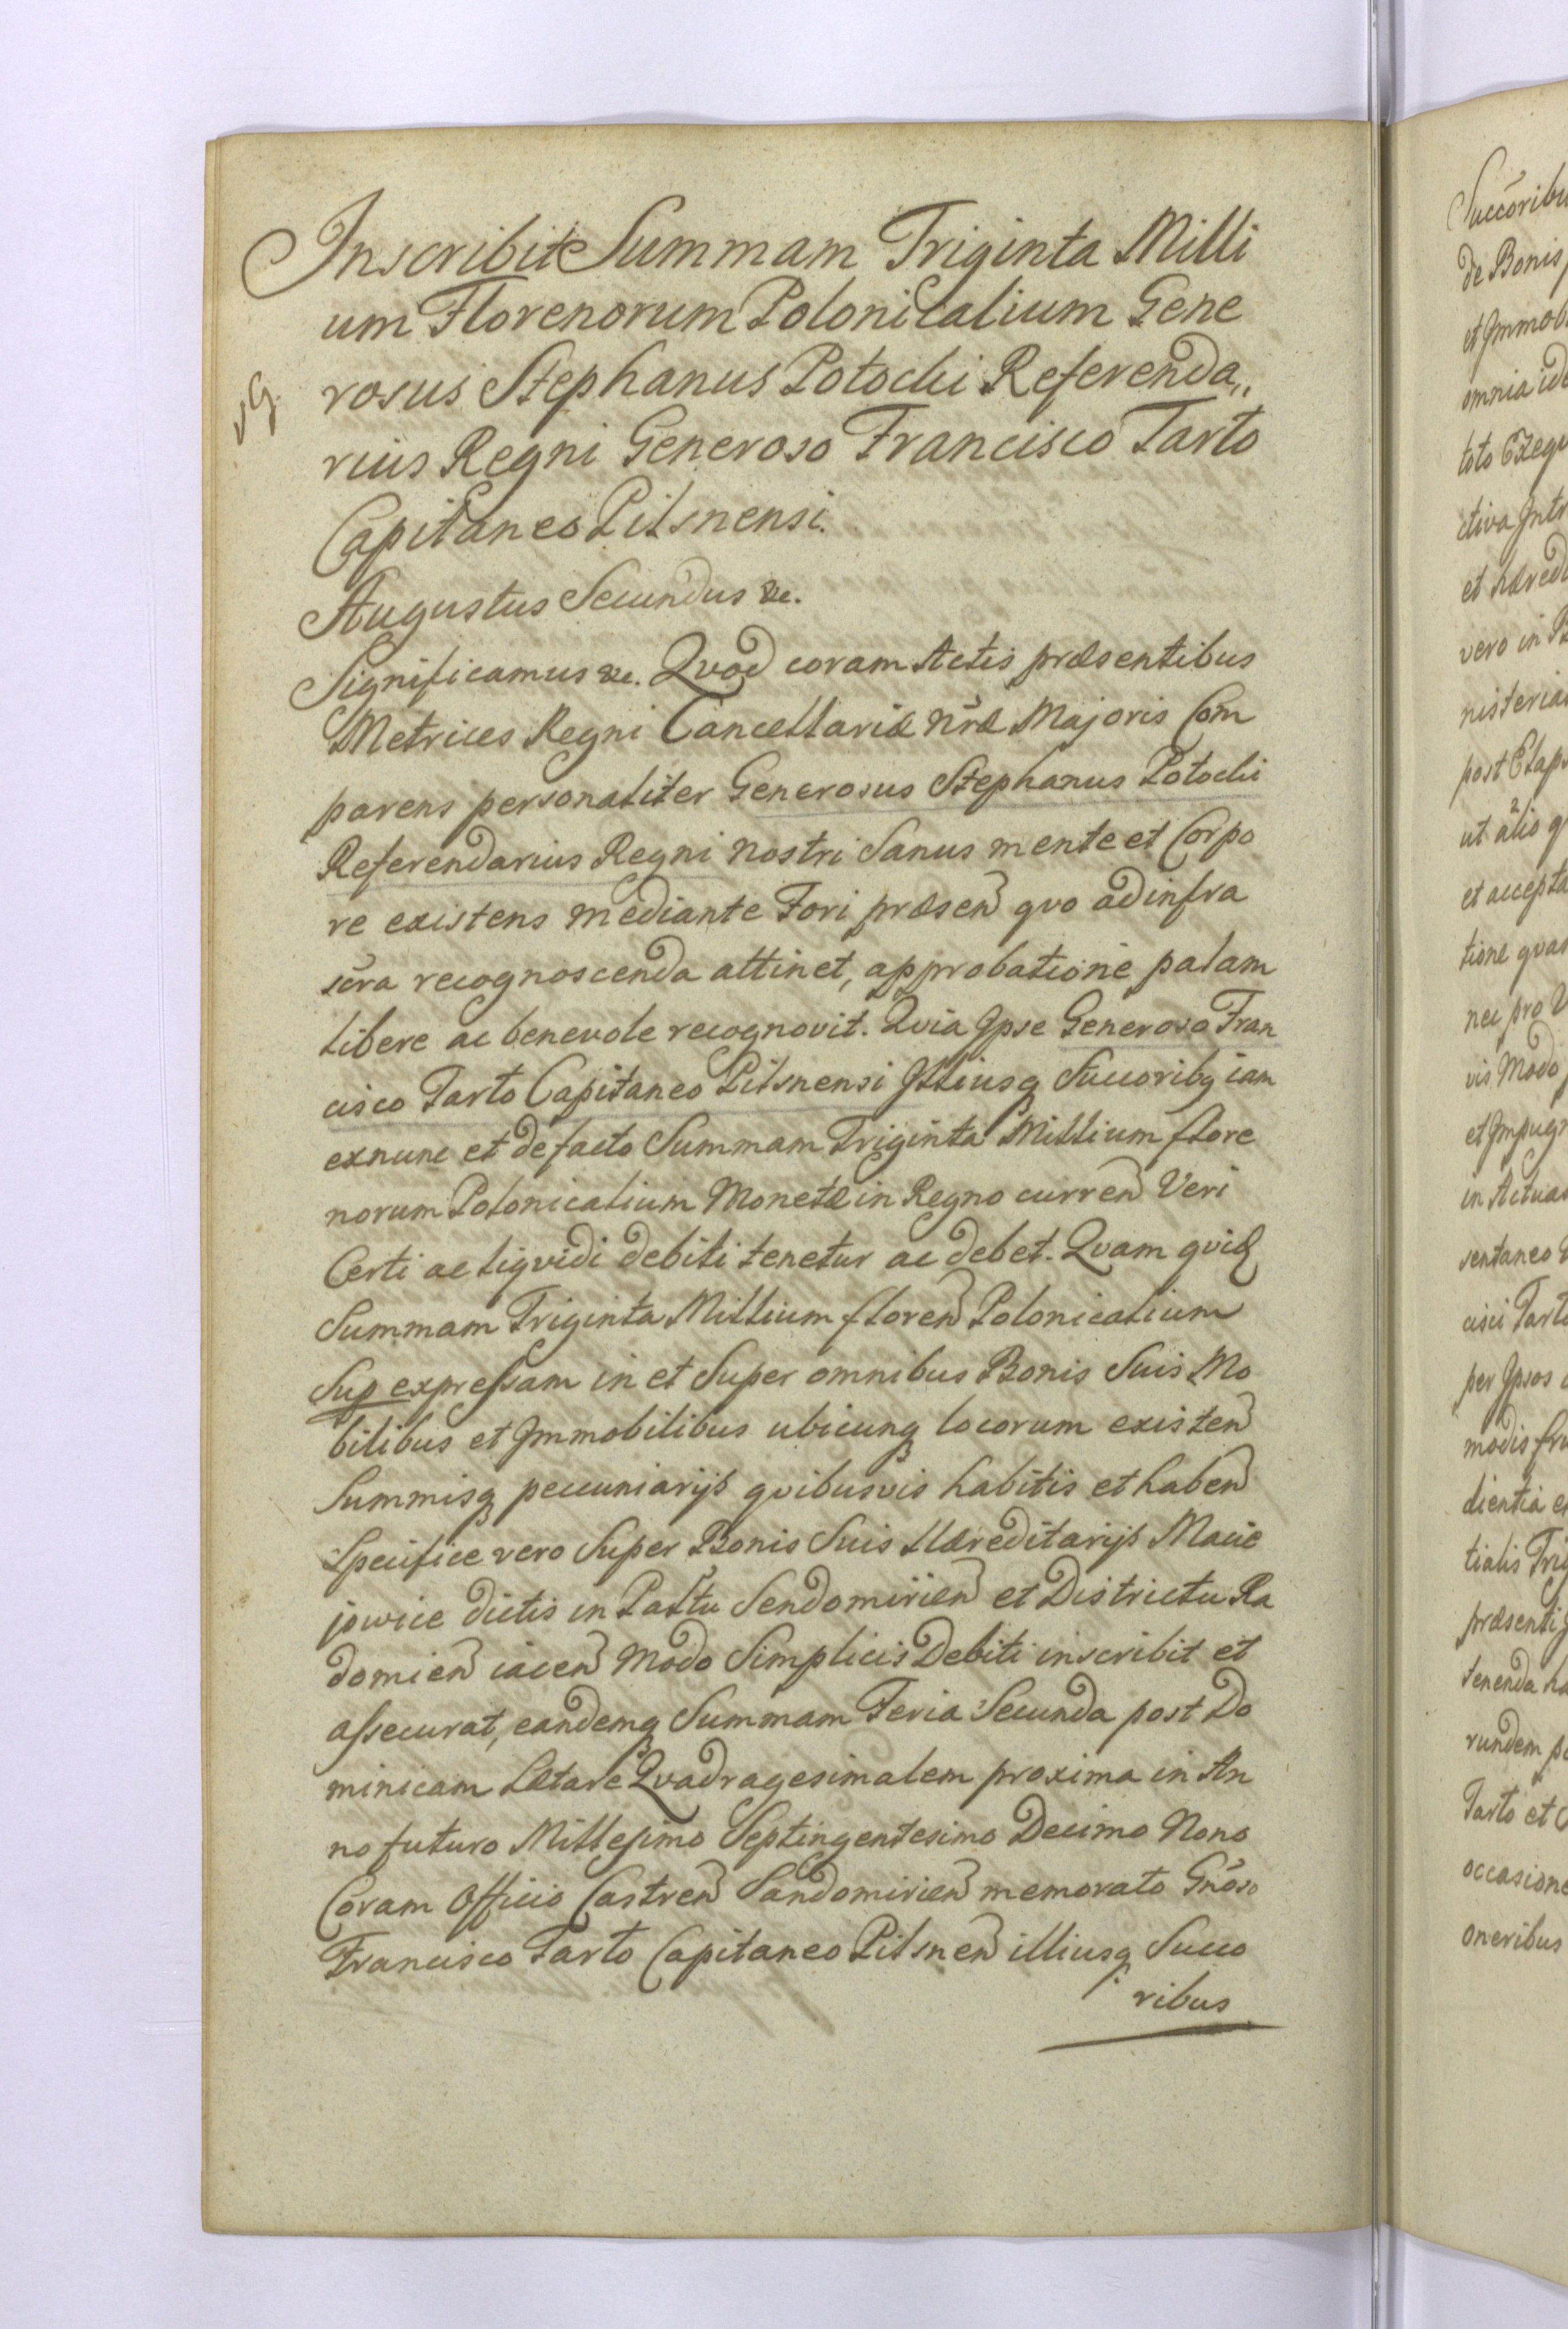 Inscribit Summam Triginta Milli
um Florenorum Polonicalium Gene
rosus Stephanus Potocki Referenda,,
rius Regni Generoso Francisco Tarto
Capitaneo Pilsnensi.
Augustus Secundus &c.
Significamus &c. Qvod coram Actis præsentibus
Metrices Regni Cancellariæ nr̃æ Majoris Com̃
parens personaliter Generosus Stephanus Potocki
Referendarius Regni nostri Sanus mente et Corpo
re existens mediante Fori præsen̄ qvo ad infra
scr̃a recognoscenda attinet, approbatione palam
libere ac benevole recognovit. Qvia Ipse Generoso Fran
cisco Tarto Capitaneo Pilsnensi Illiusq Succoribq iam
exnunc et de facto Summam Triginta Millium flore
norum Polonicalium Monetæ in Regno curren̄ Veri
Certi ac liqvidi debiti tenetur ac debet. Qvam qvid
Summam Triginta Millium floren̄ Polonicalium
Sup expressam in et Super omnibus Bonis Suis Mo
bilibus et Immobilibus ubicunq locorum existen̄
Summisq pecuniarijs qvibusvis habitis et haben̄
Specifice vero Super Bonis Suis Hæreditarijs Macie
jowice dictis in Paltu Sendomirien̄ et Districtu Ra
domien̄ iacen̄ Modo Simplicis Debiti inscribit et
assecurat, eandemq Summam Feria Secunda post Do
minicam Lætare Qvadragesimalem proxima in An
no futuro Millesimo Septingentesimo Decimo Nono
Coram Officio Castren̄ Sandomirien̄ memorato Gnõso
Francisco Tarto Capitaneo Pilsnen̄ illiusq Succo
ribus
vG.
Succõribu
de Bonis
et Immob
omnia
toto Exeq
ctiva Intr
et hæred
vero in
nisteria
post Elaps
ut ãlio q
et accepta
tione qvar
nec pro V
vis Modo
et Impugn
in Actua
sentaneo
cisci Tart
per Ipsos
modis fru
dientia e
tialis Trig
præsenti
tenenda ha
rundem p
Tarto et
occasione
oneribus